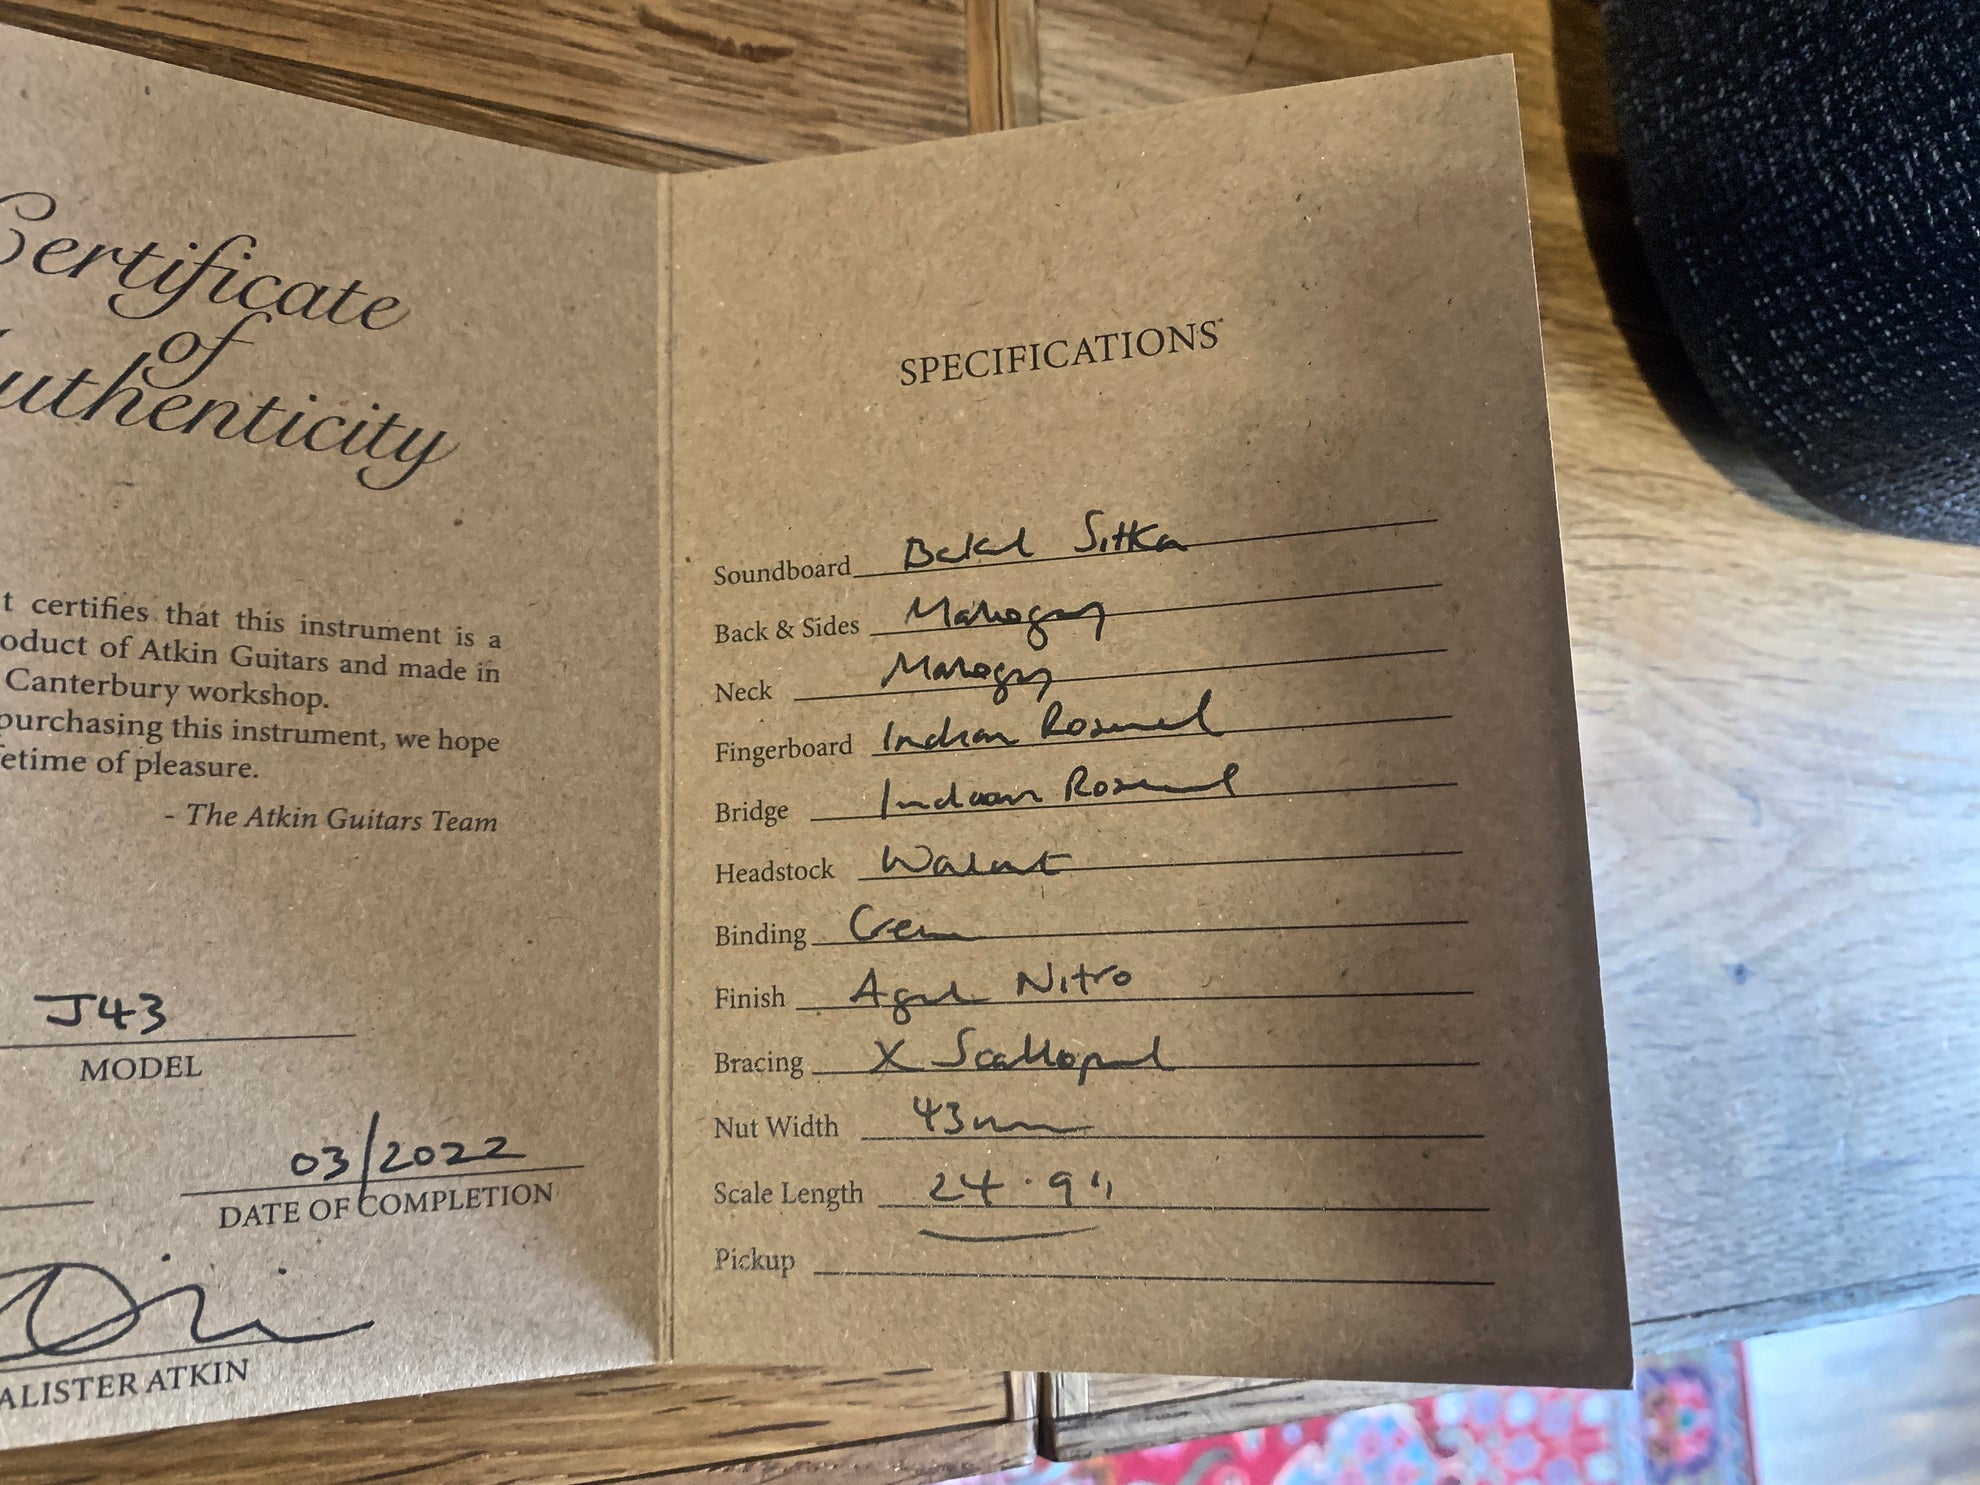 Certificate
of
uthenticity
t certifies that this instrument is a
oduct of Atkin Guitars and made in
Canterbury workshop.
purchasing this instrument, we hope
etime of pleasure.
- The Atkin Guitars Team
J43
MODEL
03/2022
DATE OF COMPLETION
ALISTER ATKIN
SPECIFICATIONS
Soundboard Baked Sitka
Back & Sides Mahogany
Neck Mahogany
Fingerboard Indian Rosewood
Bridge Indian Rosewood
Headstock Walnut
Binding Cream
Finish Aged Nitro
Bracing X Scalloped
Nut Width 43mm
Scale Length 24.9"
Pickup